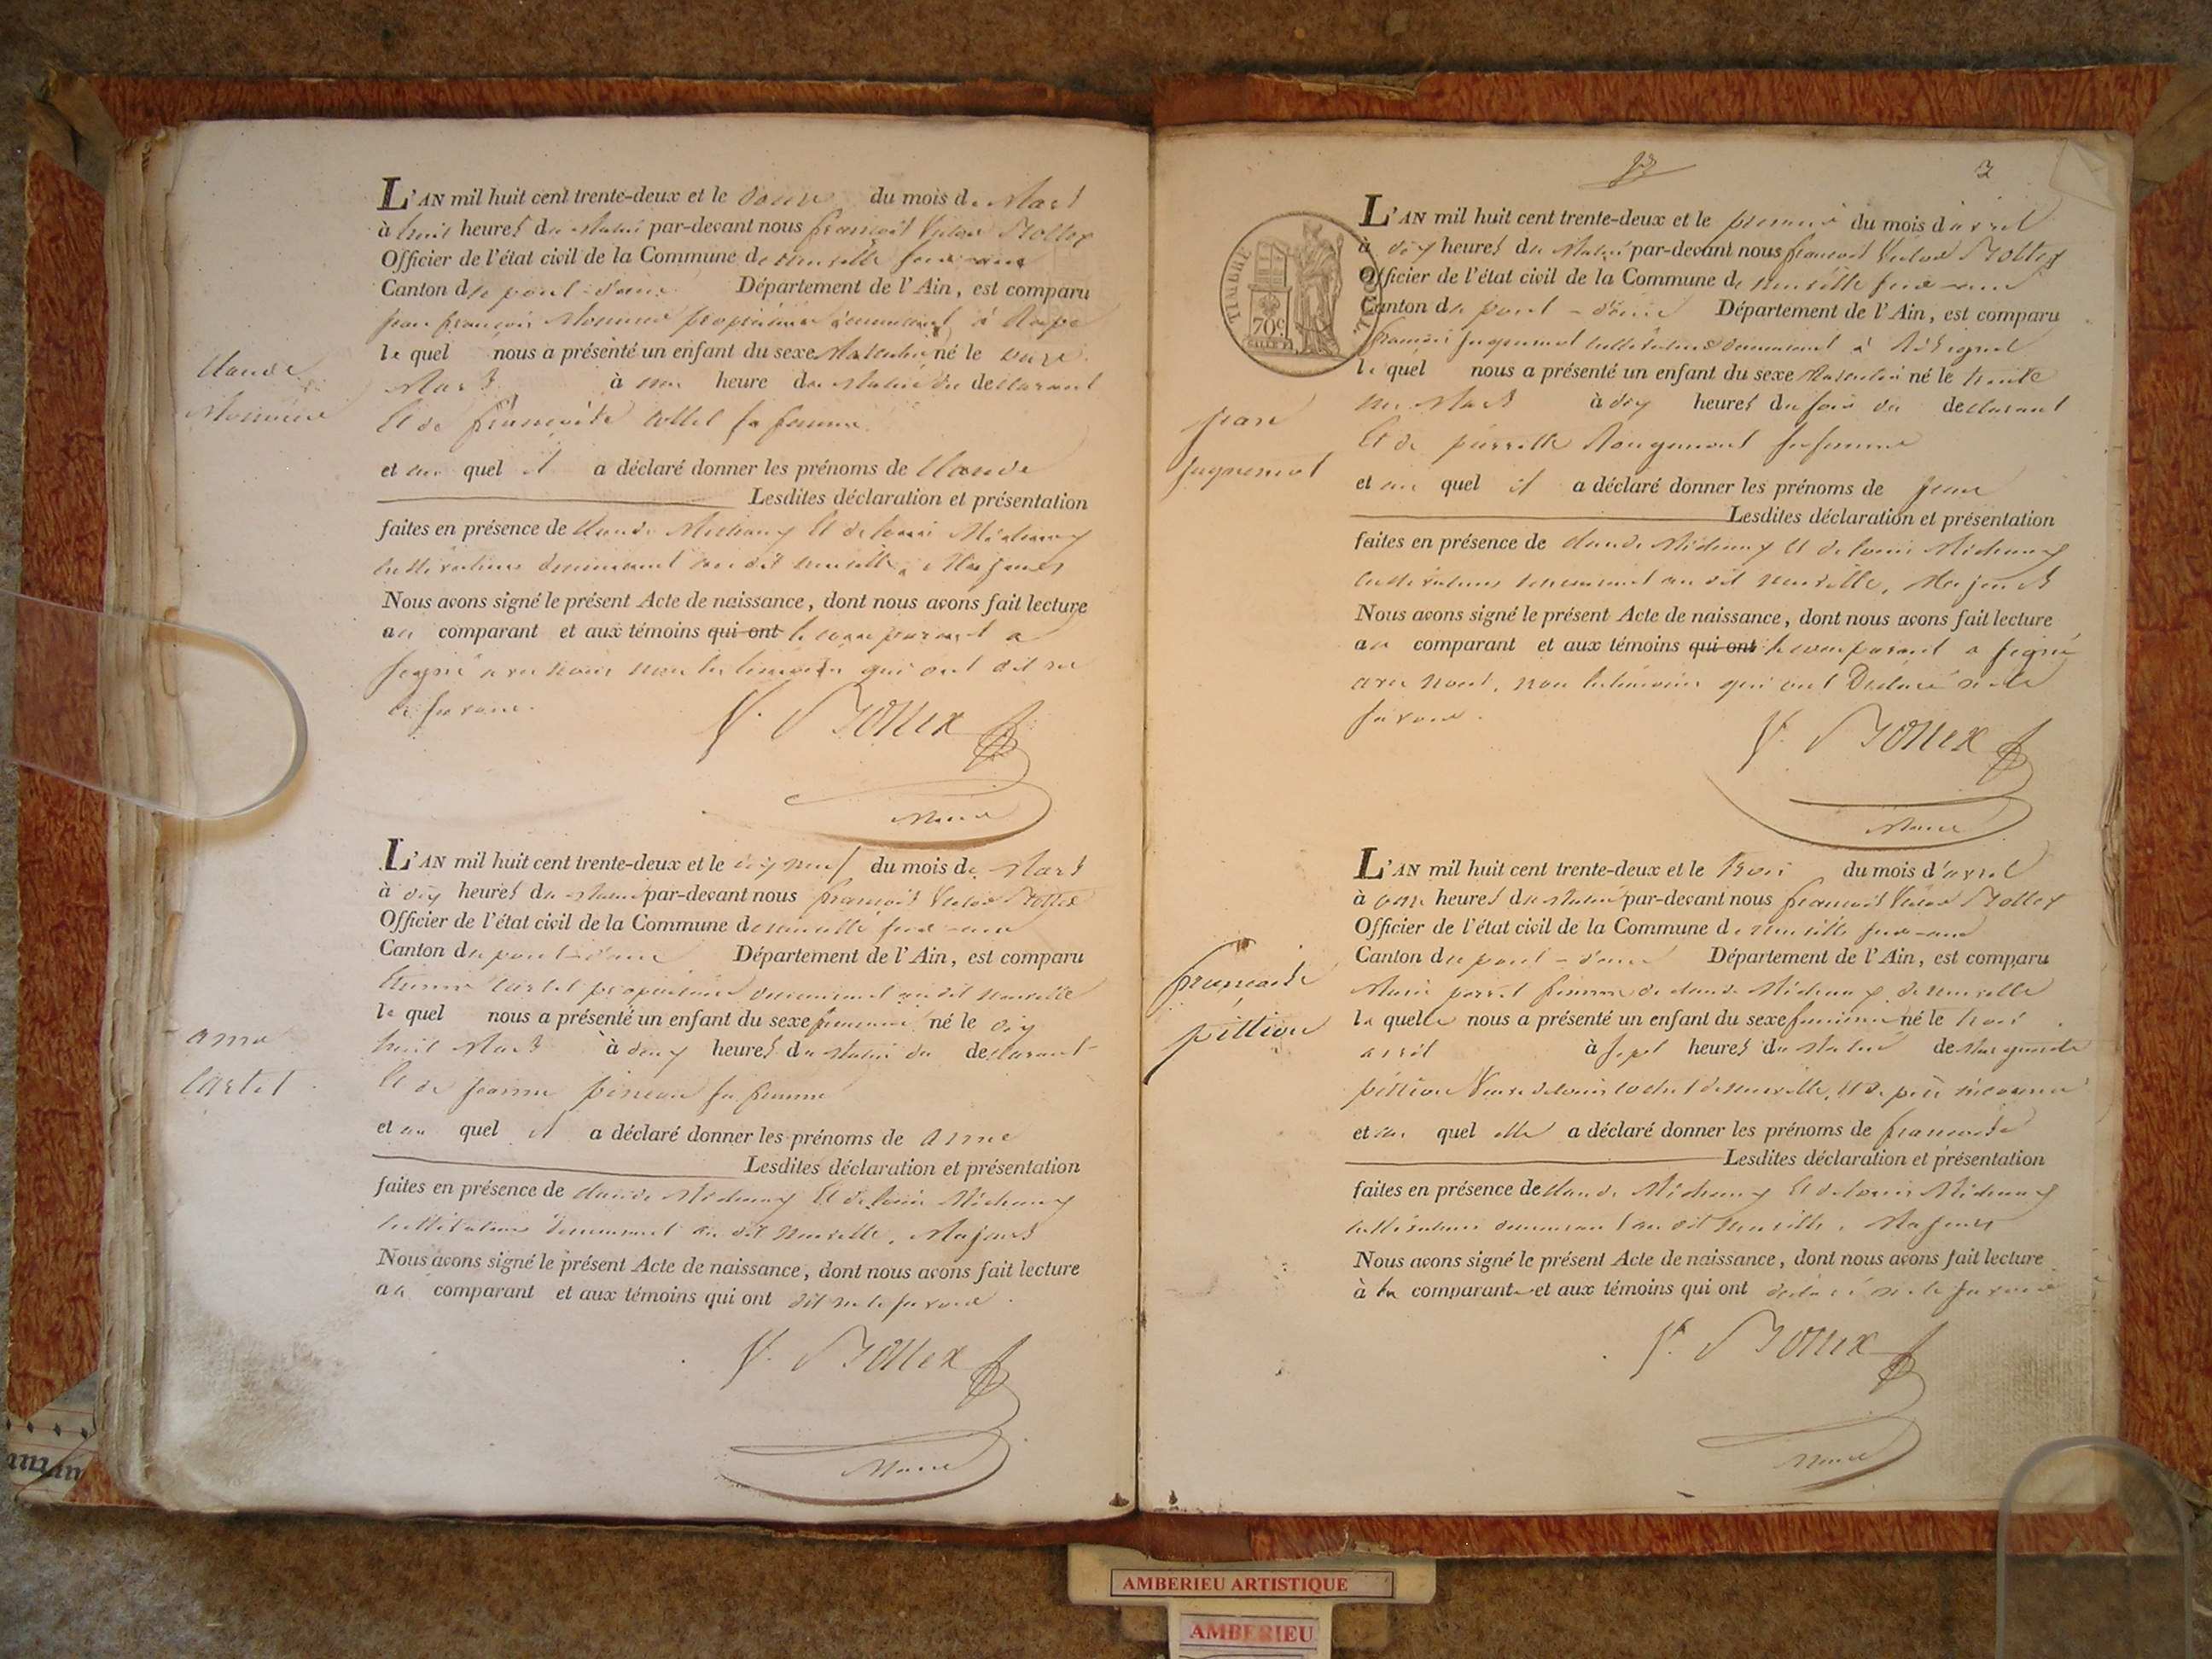 Claude
Monnier
L'AN mil huit cent trente-deux et le douze du mois de Mars
à huit heures du Matin par-devant nous françois Victor Bottex
Officier de l'état civil de la Commune de neuville sur ain
Canton de pont-d'ain Département de l'Ain, est comparu
jean françois Monnier propriétaire demeurant à
le quel nous a présenté un enfant du sexe Masculin né le onze
Mars à une heure du Matin du declarant
Et de françoise Collet sa femme
et au quel il a déclaré donner les prénoms de Claude
Lesdites déclaration et présentation
faites en présence de Claude Michaux Et de louis Michaux
cultivateurs demeurant au dit neuville, Majeurs
Nous avons signé le présent Acte de naissance, dont nous avons fait lecture
au comparant et aux témoins qui ont le comparant a
signé avec nous non les témoins qui ont dit ne
le savoir.
V. Bottex
Maire
anne
Cartet
L'AN mil huit cent trente-deux et le dix neuf du mois de Mars
à dix heures du Matin par-devant nous françois Victor Bottex
Officier de l'état civil de la Commune de neuville sur ain
Canton de pont-d'ain Département de l'Ain, est comparu
Etienne Cartet propriétaire demeurant au dit neuville
le quel nous a présenté un enfant du sexe feminin né le dix
huit Mars à deux heures du Matin du declarant
Et de jeanne sa femme
et au quel il a déclaré donner les prénoms de anne
Lesdites déclaration et présentation
faites en présence de Claude Michaux Et de louis Michaux
cultivateurs demeurant au dit Neuville, Majeurs
Nous avons signé le présent Acte de naissance, dont nous avons fait lecture
au comparant et aux témoins qui ont dit ne le savoir.
V. Bottex
Maire
3
TIMBRE ROYAL
70c
jean
jugnemot
L'AN mil huit cent trente-deux et le premier du mois d'avril
à dix heures du Matin par-devant nous françois Victor Bottex
Officier de l'état civil de la Commune de neuville sur ain
Canton de pont-d'ain Département de l'Ain, est comparu
françois cultivateur demeurant à Résignel
le quel nous a présenté un enfant du sexe Masculin né le trente
un Mars à dix heures du soir du declarant
Et de pierrette Rougemont sa femme
et au quel il a déclaré donner les prénoms de jean
Lesdites déclaration et présentation
faites en présence de Claude Michaux Et de louis Michaux
cultivateurs demeurant au dit neuville, Majeurs
Nous avons signé le présent Acte de naissance, dont nous avons fait lecture
au comparant et aux témoins qui ont le comparant a signé
avec nous, non les témoins qui ont Déclaré ne le
savoir.
V. Bottex
Maire
françoise
pittion
L'AN mil huit cent trente-deux et le trois du mois d'avril
à onze heures du Matin par-devant nous françois Victor Bottex
Officier de l'état civil de la Commune de neuville sur ain
Canton de pont-d'ain Département de l'Ain, est comparu
Marie perret femme de claude Michaux de neuville
la quelle nous a présenté un enfant du sexe feminin né le trois
avril à sept heures du Matin de Marguerite
pittion Veuve de louis cochet de neuville, Et de père inconnu
et au quel elle a déclaré donner les prénoms de françoise
Lesdites déclaration et présentation
faites en présence de Claude Michaux Et de louis Michaux
cultivateurs demeurant au dit neuville, Majeurs
Nous avons signé le présent Acte de naissance, dont nous avons fait lecture
à la comparante et aux témoins qui ont déclaré ne le savoir
V. Bottex
Maire
AMBERIEU ARTISTIQUE
AMBERIEU